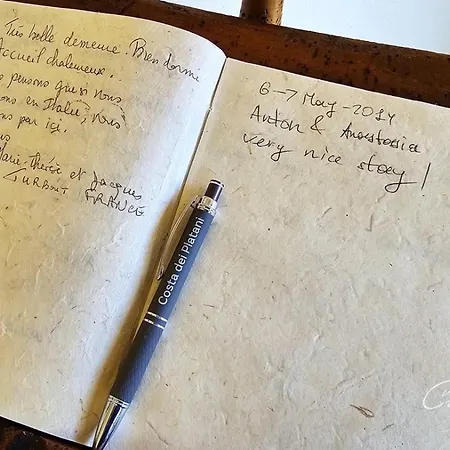 Très belle demeure. Bien dormi
Accueil chaleureux.
s pensons que si nous
ons en Italie, nous
ons par ici.
us
Marie-Thérèse et Jacques
FRANCE
6 → 7 May - 2014
Anton & Anastasia
very nice stay!
Costa dei Platani